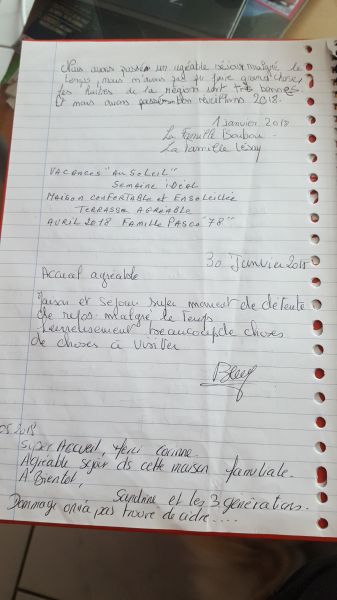 Nous avons passés un agréable séjour malgré le
temps, nous n'avons pas pu faire grand chose,
les huitres de la régions sont très bonnes.
Et nous avons passé reveillons 2018.
1 Janvier 2018
La famille Boubou
La famille
VACANCES "AU SOLEIL"
SEMAINE IDÉAL
MAISON CONFORTABLE ET ENSOLEILLÉE
TERRASSE AGRÉABLE
AVRIL 2018 FAMILLE PASCO "78"
30 Janvier 2018
Accueil agréable
Maison et sejour super moment de détente
de repos malgré le temps
heureusement beaucoup de choses
de choses à visiter
05.2018
Super Accueil, Merci Corinne.
Agréable séjour ds cette maison familiale.
A Bientôt,
Sandrine et les 3 générations.
Dommage on n'a pas trouvé de cidre....